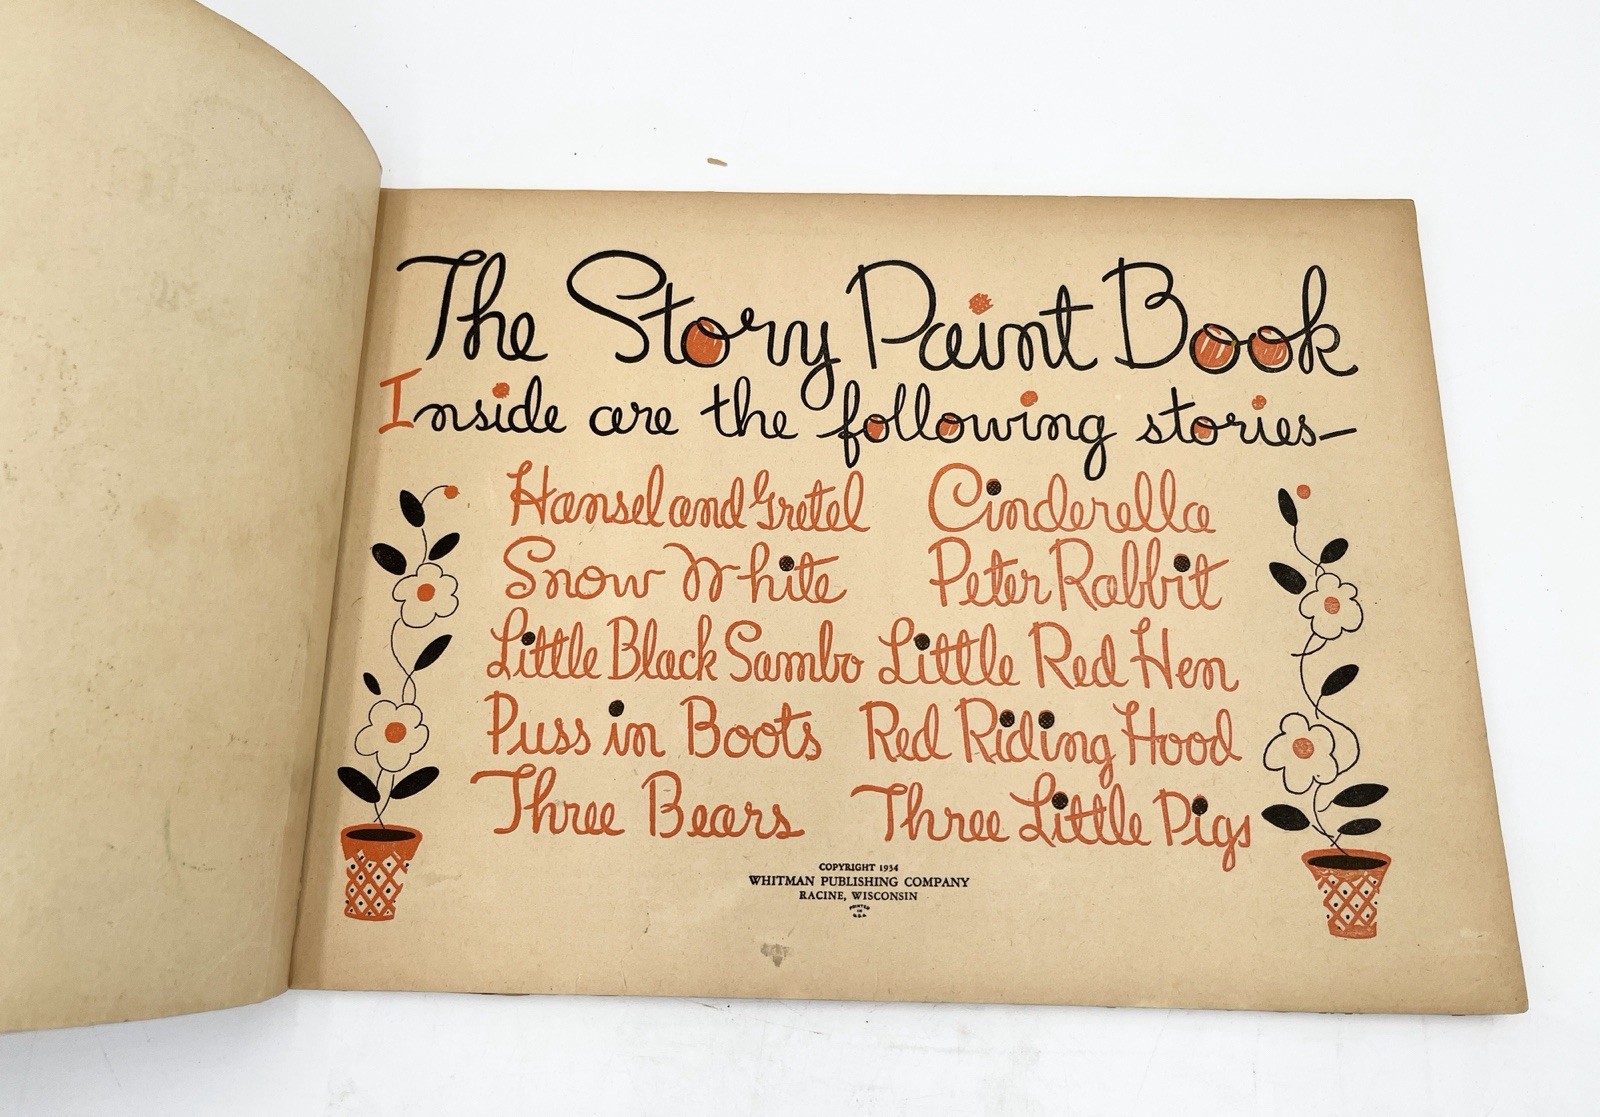 The Story Paint Book
Inside are the following stories—
Hansel and Gretel
Cinderella
Snow White
Peter Rabbit
Little Black Sambo
Little Red Hen
Puss in Boots
Red Riding Hood
Three Bears
Three Little Pigs
COPYRIGHT 1934
WHITMAN PUBLISHING COMPANY
RACINE, WISCONSIN
PRINTED
IN
U.S.A.